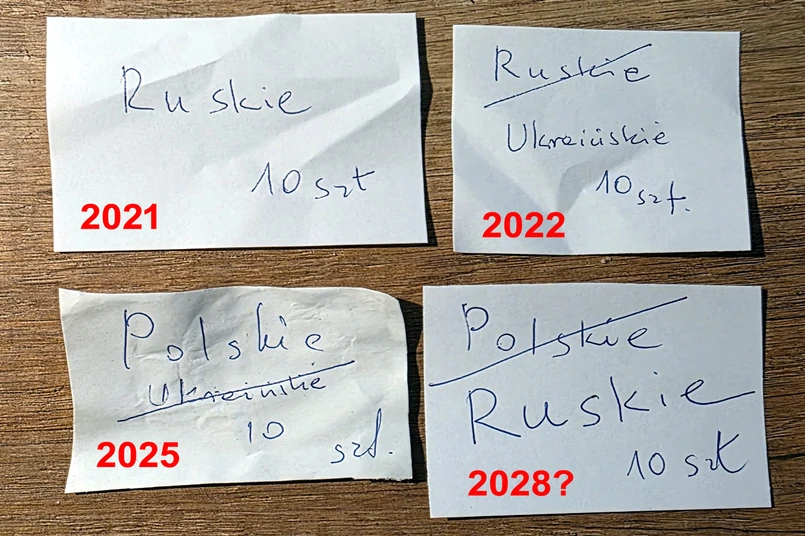 Ruskie
10 szt
2021
Ruskie
Ukraińskie
10 szt.
2022
Polskie
Ukraińskie
10
szt.
2025
Polskie
Ruskie
10 szt
2028?